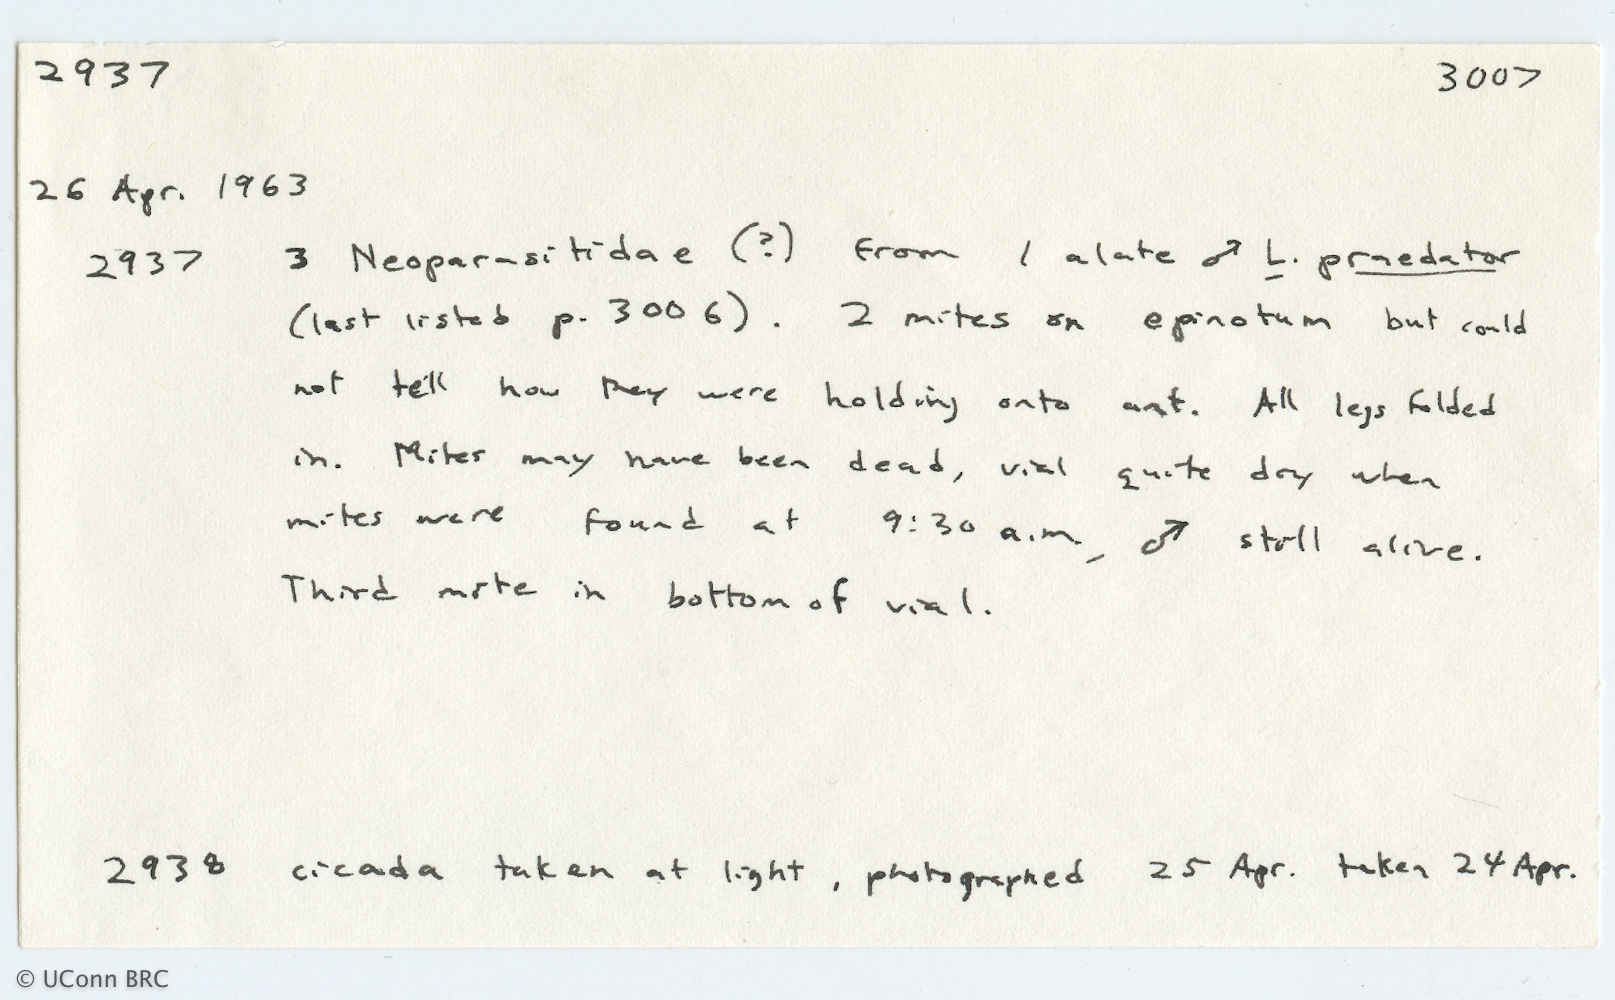 2937 3007
26 Apr. 1963
2937 3 Neoparasitidae (?) from 1 alate ♂ L. praedator
(last listed p. 3006). 2 mites on epinotum but could
not tell how they were holding onto ant. All legs folded
in. Mites may have been dead, vial quite dry when
mites were found at 9:30 a.m., ♂ still alive.
Third mite in bottom of vial.
2938 cicada taken at light, photographed 25 Apr. taken 24 Apr.
© UConn BRC